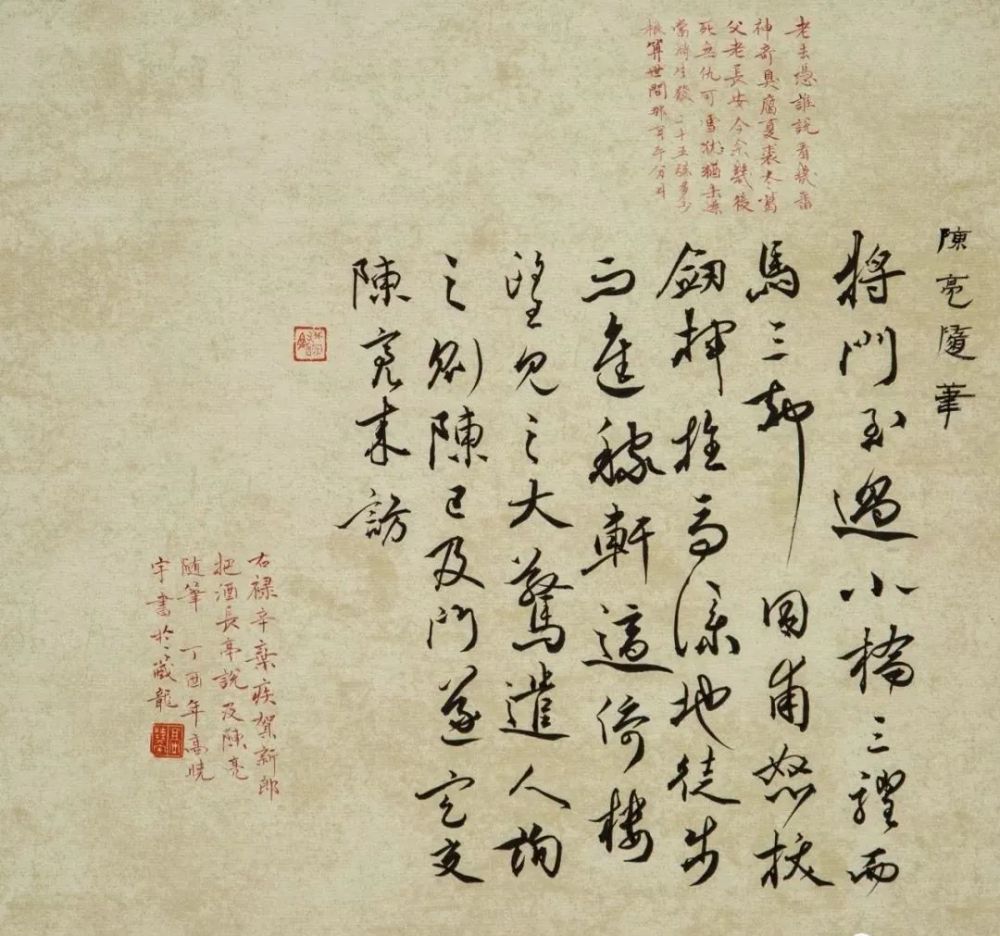 老去憑誰說看幾番
神奇臭腐夏裘冬葛
父老長安今余幾後
死無仇可雪猶未燥
當時生發二十五弦多少
恨算世間那有平分月
陳亮隨筆
將門至過小橋三躍而
馬三却同甫怒拔
劍揮地徒步
而進稼軒適倚樓
望見之大驚遣人詢
之則陳已及門遂定交
陳亮來訪
右祿辛棄疾賀新郎
把酒長亭說及陳亮
隨筆 丁酉年高曉
宇書於藏龍